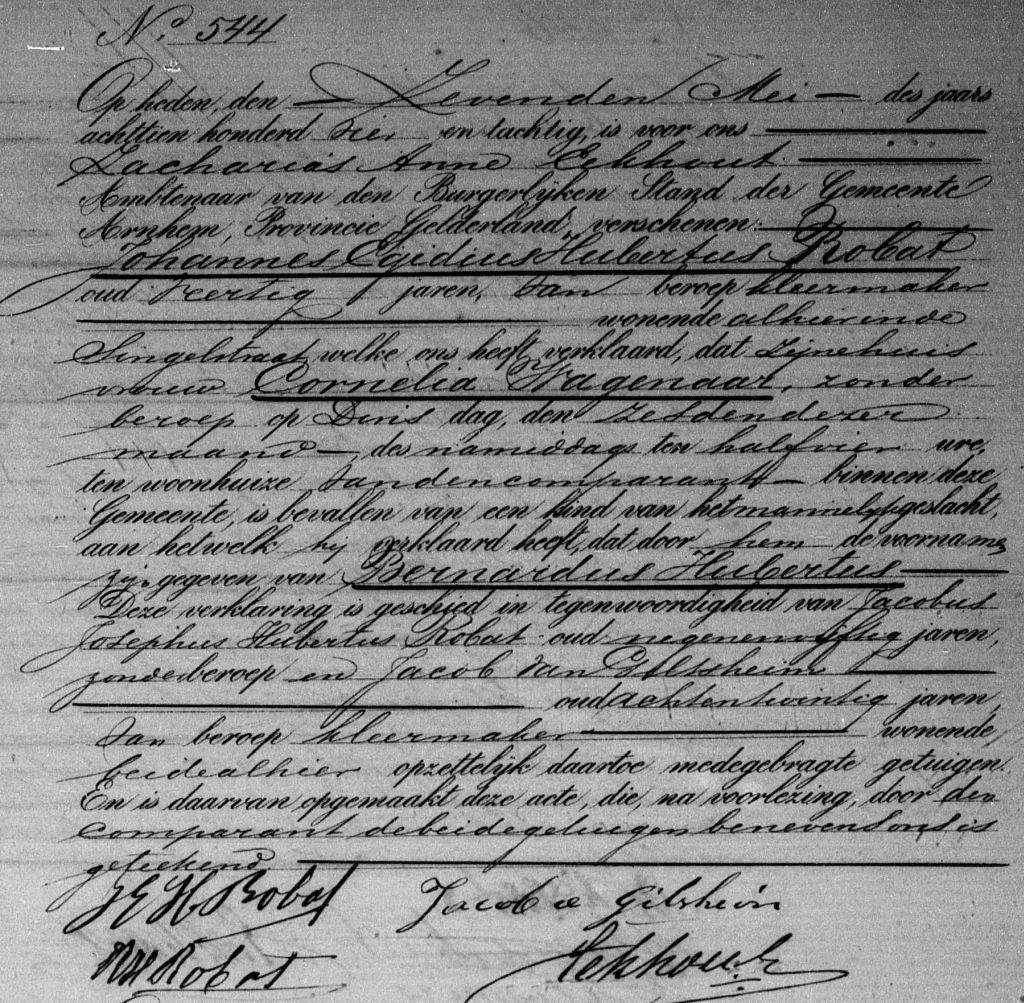 No. 544
Op heden, den Zevenden Mei des jaars
achttien honderd vier en tachtig, is voor ons
Zacharias Anne Eekhout
Ambtenaar van den Burgerlijken Stand der Gemeente
Arnhem, Provincie Gelderland, verschenen:
Johannes Egidius Hubertus Robat
oud veertig jaren, van beroep kleermaker
wonende alhier in de
Singelstraat, welke ons heeft verklaard, dat zijne huis
vrouw Cornelia Wagenaar, zonder
beroep op Dins dag, den zesden dezer
maand, des namiddags ten half vier ure,
ten woonhuize van den comparant binnen deze
Gemeente, is bevallen van een kind van het mannelijk geslacht,
aan hetwelk hij verklaard heeft, dat door hem de voornamen
zijn gegeven van Bernardus Hubertus
Deze verklaring is geschied in tegenwoordigheid van Jacobus
Josephus Hubertus Robat oud negenenvijftig jaren,
zonder beroep en Jacob van
oud achtentwintig jaren,
van beroep kleermaker wonende
beide alhier opzettelijk daartoe medegebragte getuigen.
En is daarvan opgemaakt deze acte, die, na voorlezing, door den
comparant de beide getuigen benevens ons is
geteekend
J E H Robat Jacob
Robat Eekhout